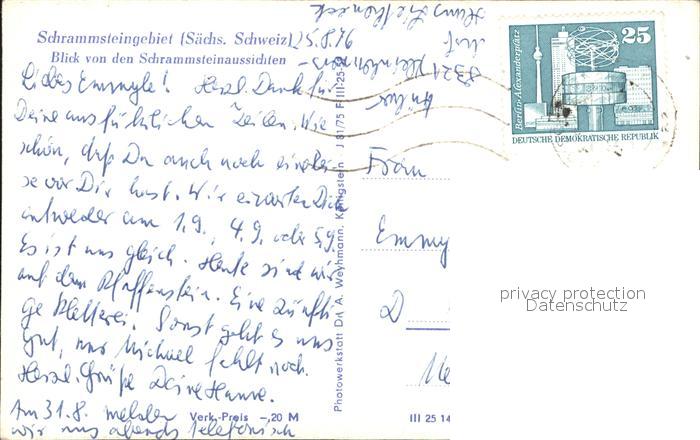 Schrammsteingebiet (Sächs. Schweiz) 25.8.76
Blick von den Schrammsteinaussichten
Liebes Emmyle! Herzl. Dank für
Deine ausführlichen Zeilen. Wie
schön, daß Du auch noch eine Rei-
se vor Dir hast. Wir erwarten Dich
entweder am 1.9., 4.9. oder 5.9.
Es ist uns gleich. Heute sind wir
auf dem Pfaffenstein. Eine zünfti-
ge Kletterei. Sonst geht es uns
gut, nur Michael fehlt noch.
Herzl. Grüße Deine Hanne.
Am 31.8. melden
wir uns abends telefonisch
Verk.-Preis -,20 M
Photowerkstatt Dr. A. Weyhmann, Königstein J 81/75 F III-25-
III 25 14
Frau
Emmy
D
Berlin-Alexanderplatz
25
DEUTSCHE DEMOKRATISCHE REPUBLIK
privacy protection
Datenschutz